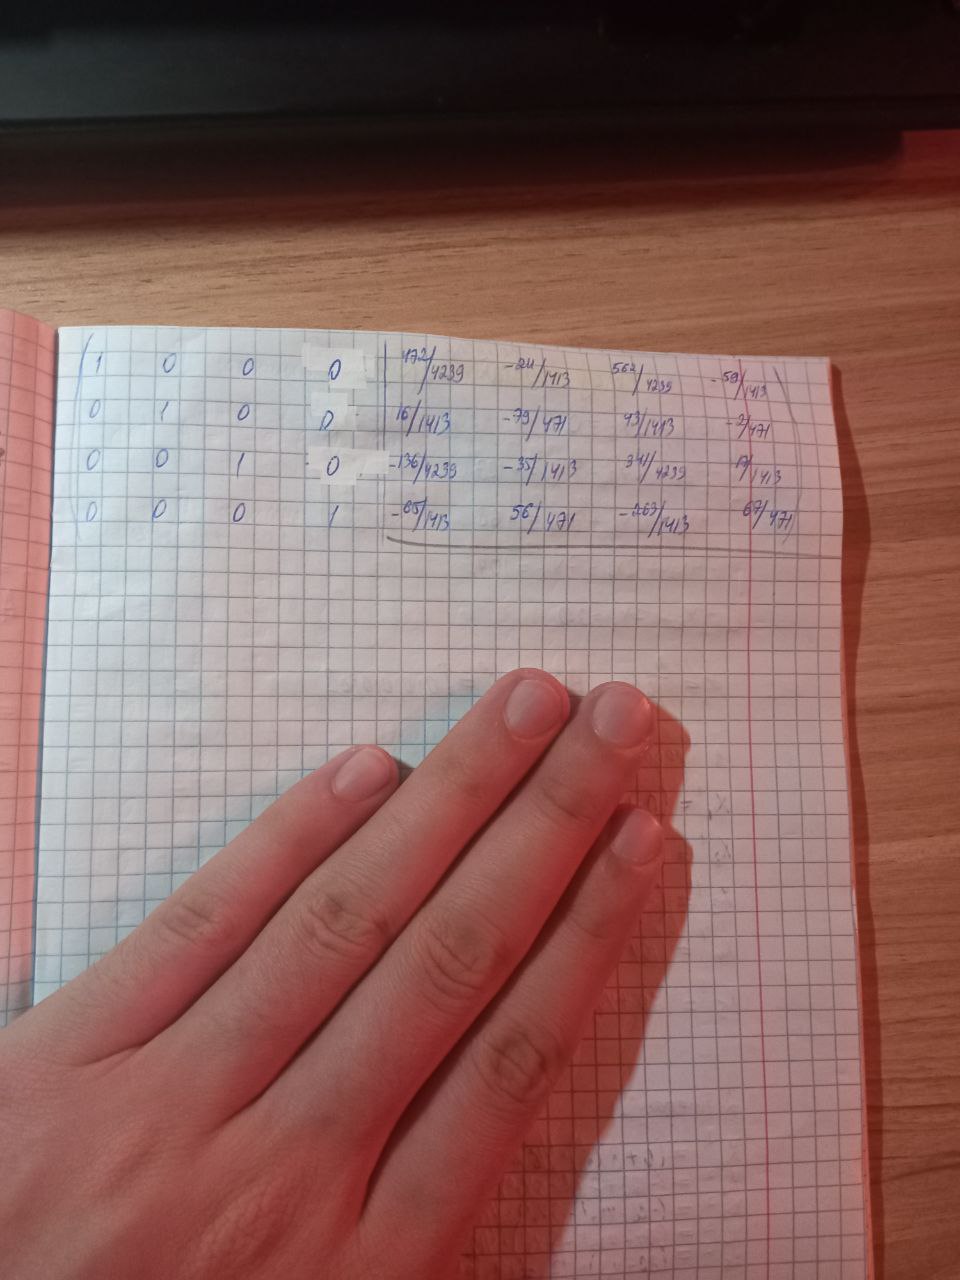 1 0 0 0 | 472/4239 -24/1413 562/4239 -59/1413
0 1 0 0 | 16/1413 -79/471 43/1413 -2/471
0 0 1 0 | -136/4239 -35/1413 341/4239 17/1413
0 0 0 1 | -65/1413 56/471 -263/1413 67/471